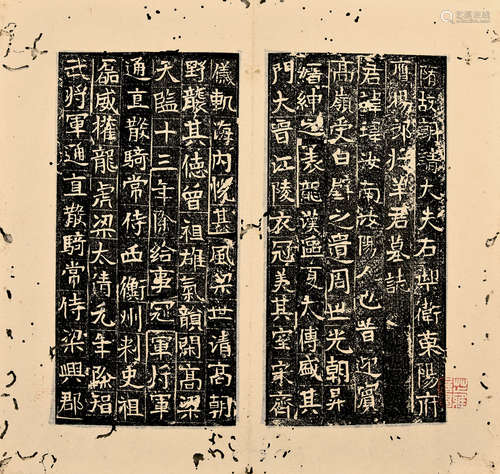 隋故朝請大夫右禦衛滎陽府
鷹楊郎將羊君墓誌
君諱瑋汝南汝陽人也昔迎賓
高嶺受白璧之遺周世光朝昇
縉紳之表龍漢區夏太傅盛其
門大晉江陵衣冠美其室宋齊
儀軌海內悅甚風梁世清高朝
野襲其德曾祖雄氣韻閑高梁
天監十三年除給事冠軍將軍
通直散騎常侍西衡州刺史祖
磊威權龍虎梁太清元年除智
武將軍通直散騎常侍梁興郡